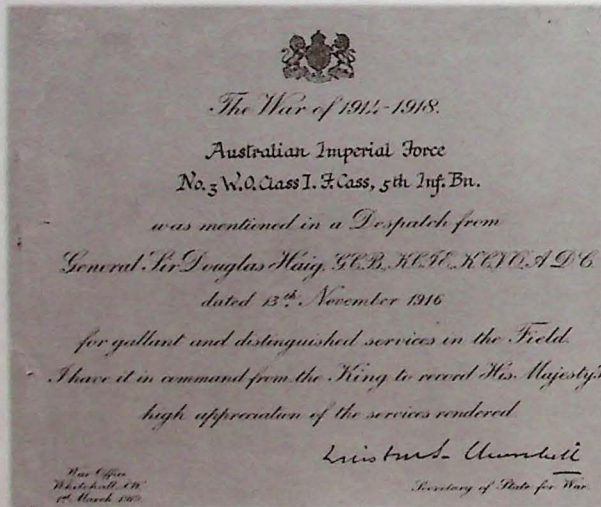 The War of 1914-1918.
Australian Imperial Force
No. 3 W.O. Class I. F. Cass, 5th Inf. Bn.
was mentioned in a Despatch from
General Sir Douglas Haig, G.C.B., K.C.I.E., K.C.V.O., A.D.C.
dated 13th November 1916
for gallant and distinguished services in the Field.
I have it in command from the King to record His Majesty's
high appreciation of the services rendered
Winston S. Churchill
War Office
Whitehall, S.W.
1st March 1919.
Secretary of State for War